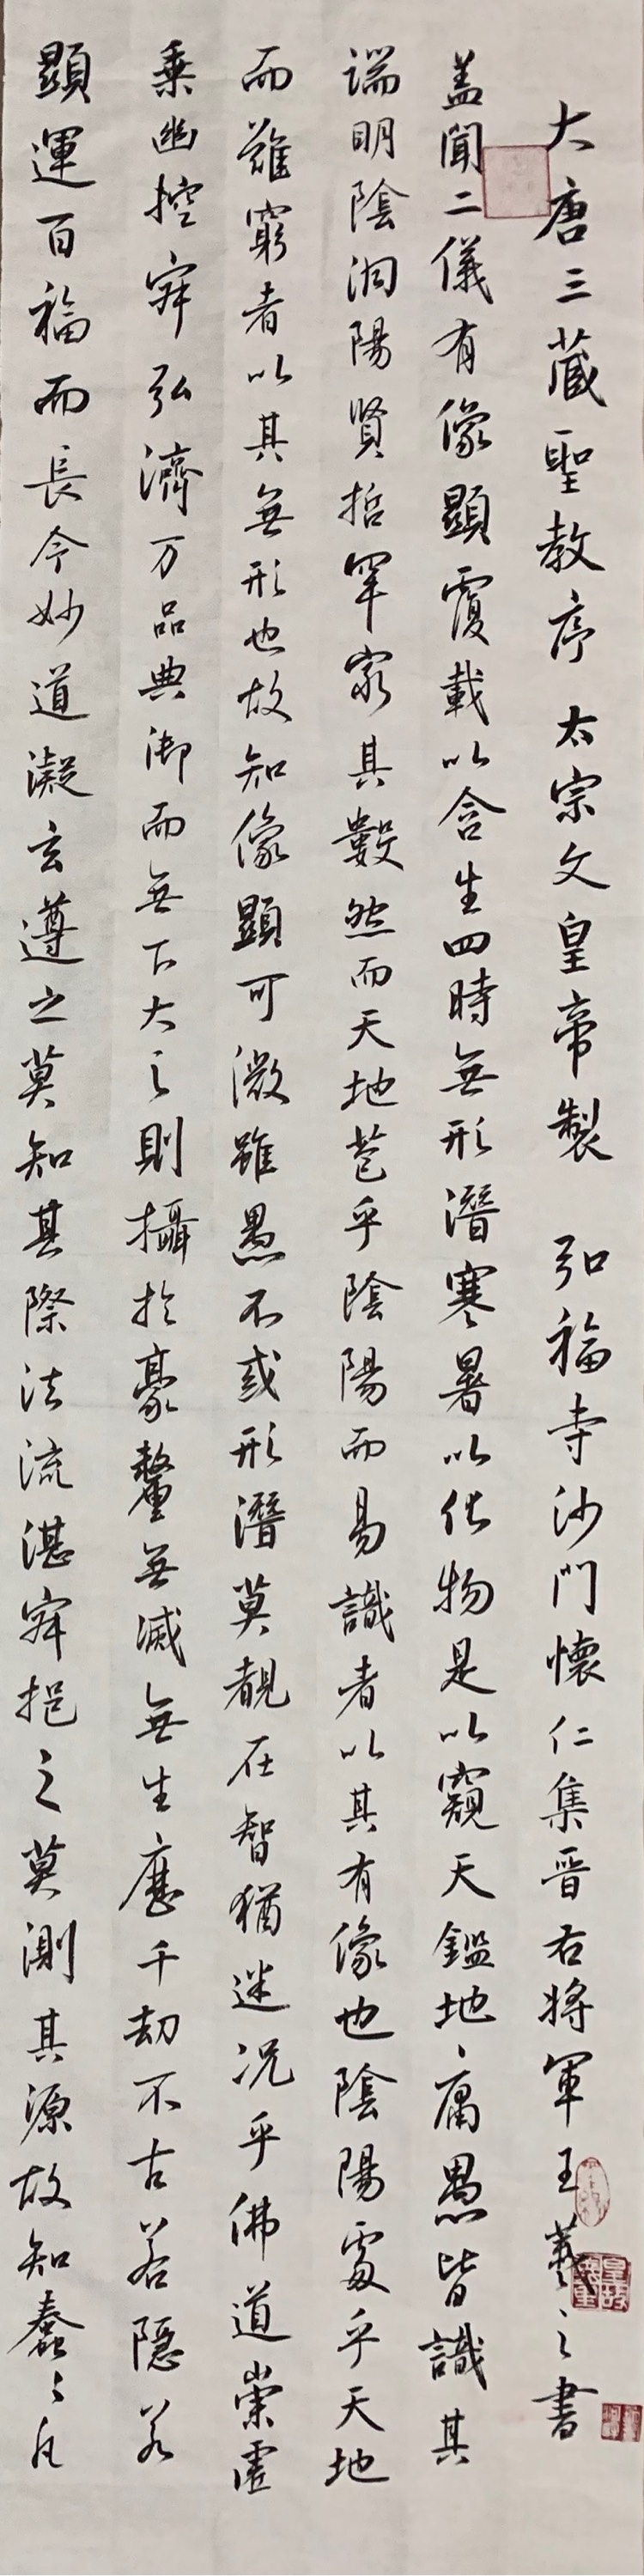 大唐三藏聖教序 太宗文皇帝製 弘福寺沙門懷仁集晉右將軍王羲之書
蓋聞二儀有像顯覆載以含生四時無形潛寒暑以化物是以窺天鑑地、庸愚皆識其
端明陰洞陽賢哲罕窮其數然而天地苞乎陰陽而易識者以其有像也陰陽處乎天地
而難窮者以其無形也故知像顯可徵雖愚不或形潛莫覩在智猶迷况乎佛道崇虛
乗幽控寂弘濟万品典御而無下大之則攝於豪釐無滅無生歷千劫不古若隱若
顯運百福而長今妙道凝玄遵之莫知其際法流湛寂挹之莫測其源故知蠢〻凡